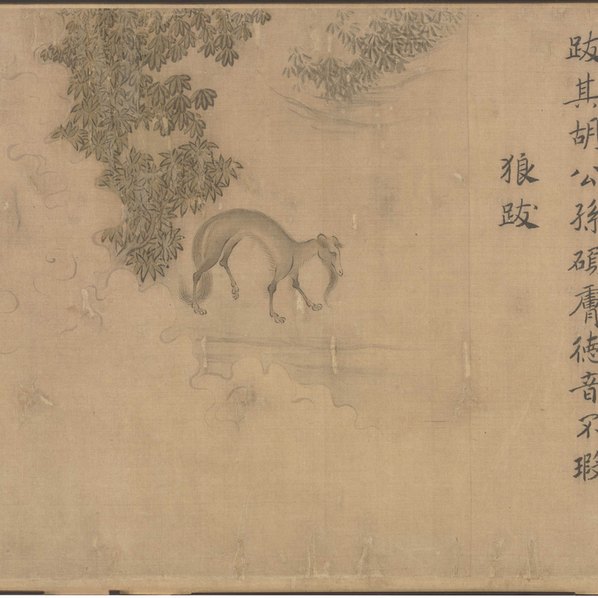 跋其胡公孫碩膚德音不瑕
狼跋